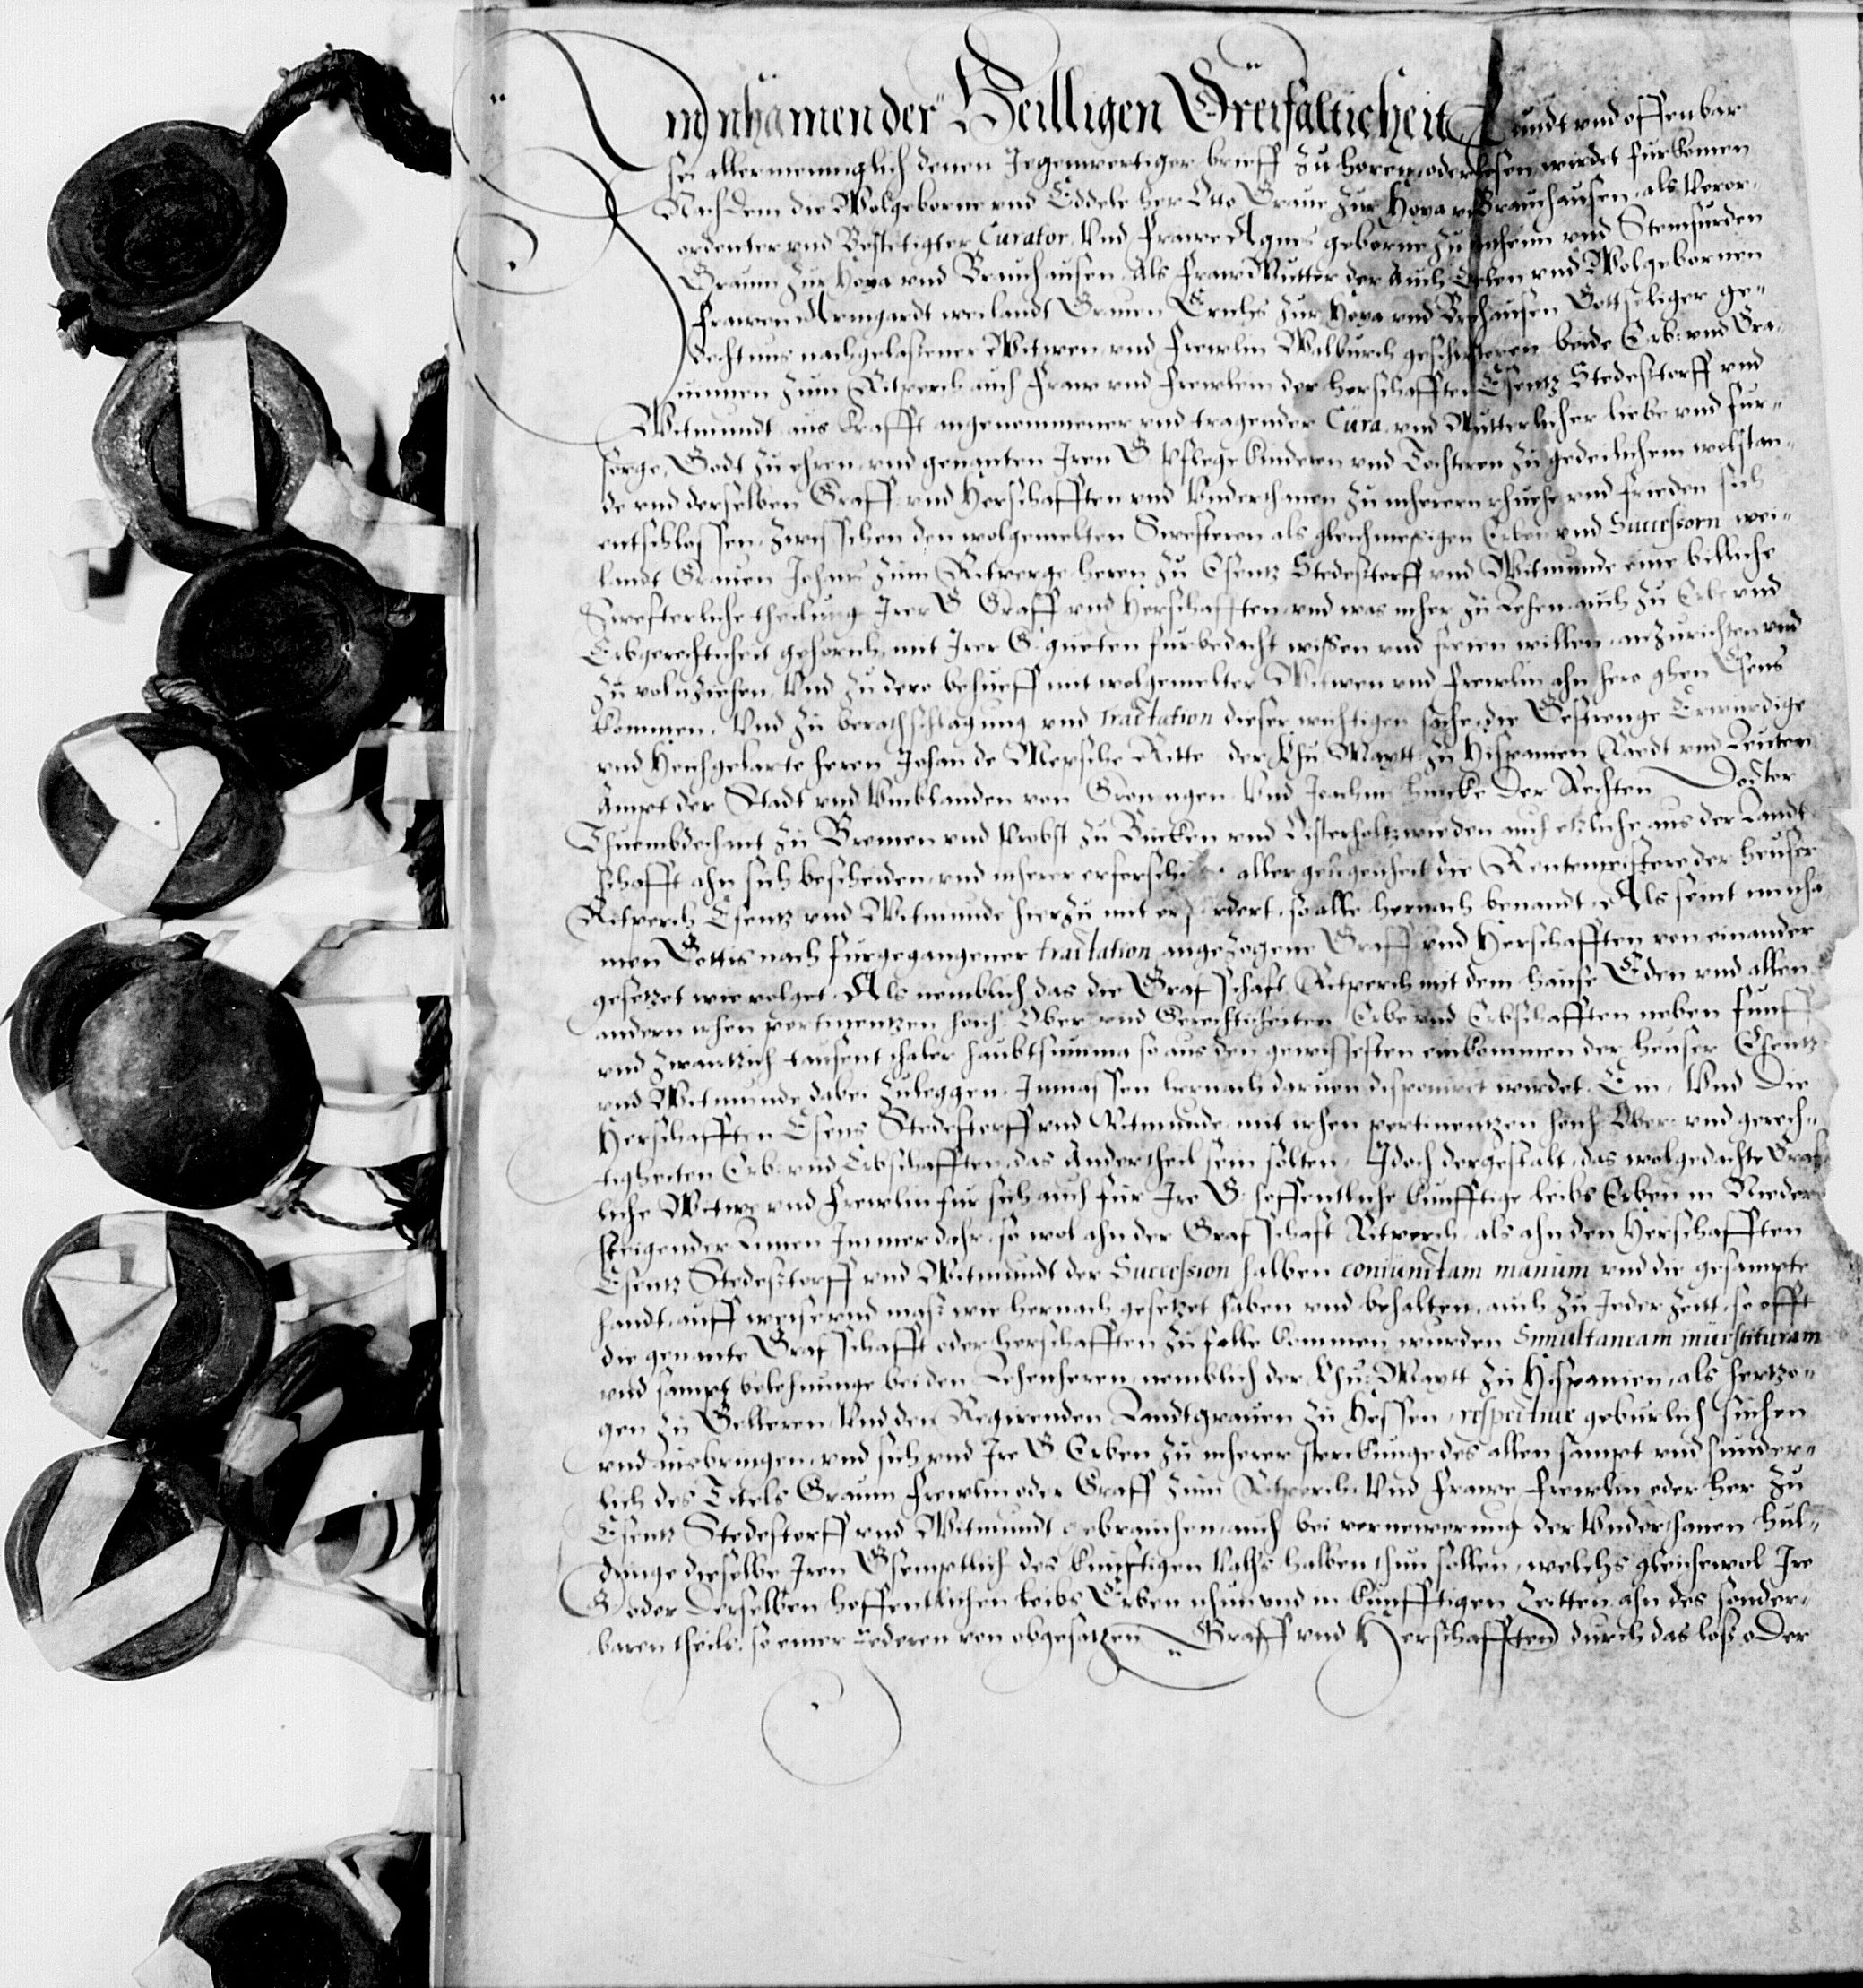 Im nhamen der Heilligen Dreifalticheit Kundt vnd offenbar
sei allermenniglich denen Jegenwertiger brieff zu horen oder lesen wirdet furkomen
Nachdem die Wolgeborne vnd Eddele her Otto Graue zur Hoya vnd Brauchausen als Veror-
ordenter vnd Bestetigter Curator Vnd Frawe Agnes geborne zu Benthem vnd Stenfurden
Grauin zur Hoya vnd Brauchausen Als Fraw Mutter der auch Edlen vnd Wolgebornen
Frawen Armgardt weilandt Grauen Erichs zur Hoya vnd Brochausen Gottseliger ge-
dechtnus nachgelassener Witwen vnd Frewlin Walburch geschwesteren beide Erb vnd Gra-
uinnen zum Ritperch auch Fraw vnd Frewlein der herschafften Esentz Stedestorff vnd
Witmundt aus krafft angenommener vnd tragender Cura vnd Mutterlicher liebe vnd fur-
sorge, Godt zu ehren vnd genanten Iren G Pflege kinderen vnd Tochteren zu gedeilichem wolstan-
de vnd derselben Graff vnd Herschafften vnd Vnderthanen zu mherern rhuehe vnd frieden sich
entschlossen zwisschen den wolgemelten Swesteren als gleichmessigen Erben vnd Successorn wei-
landt Grauen Johans zum Ritperge heren zu Esentz Stedestorff vnd Witmunde eine billiche
Swesterliche theilung Irer G Graff vnd Herschafften vnd was mher zu Lehen auch zu Erbe vnd
Erbgerechticheit gehorich mit Irer G gueten furbedacht wissen vnd freien willen anzurichten vnd
zu volnziehen Vnd zu dero behueff mit wolgemelter Witwen vnd Frewlin ahn hero ghen Esens
kommen. Vnd zu berathschlagung vnd tractation dieser wichtigen sache die Gestrenge Erwurdige
vnd Hochgelarte heren Johan de Mepsche Ritter der Khu: Maytt zu Hispanien Raedt vnd Leuten-
ampt der Stadt vnd Umblanden von Groningen Vnd Joachim Hincke der Rechten Doctor
Thuembdechant zu Bremen vnd Probst zu Bucken vnd Osterholtz wie den auch etzliche aus der Landt
schafft ahn sich bescheiden vnd mherer erforschung aller gelegenheit die Rentemeistere der heuser
Ritperch Esentz vnd Witmunde hierzu mit erfordert, so alle hernach benandt. Als seint im nha
men Gottis nach furgegangener tractation angezogene Graff vnd Herschafften von einander
gesetzet wie volget. Als nemblich das die Grafschaft Ritperch mit dem hause Eden vnd allen
andern irhen pertinentzen hoch Ober vnd Gerechticheiten Erbe vnd Erbschafften neben funff
vnd zwantzich tausent thaler haubtsumma so aus den gewissesten einkommen der heuser Esentz
vnd Witmunde dabei zuleggen Inmassen hernach daruon disponiret wirdet Ein, Vnd Die
Herschafften Esens Stedestorff vnd Witmunde mit irhen pertinentzen hoch Ober vnd gerech-
tigheiten Erb vnd Erbschafften das ander theil sein solten, Idoch dergestalt, das wolgedachte Graf-
liche Witwe vnd Frewlin fur sich auch fur Ire G. hoffentliche kunfftige leibs Erben in Nieder
steigender Linien Immerdahr so wol ahn der Grafschaft Ritperch als ahn den Herschafften
Esentz Stedestorff vnd Witmundt der Succession halben coniunctam manum vnd die gesampte
handt auff weise vnd mass wie hernach gesetzet haben vnd behalten, auch zu Jeder Zeitt so offt
die genante Grafschafft oder herschafften zu falle kommen wurden Simultaneam inuestituram
vnd sampt belehnunge bei den Lehenheren nemblich der Khu: Maytt zu Hispanien, als hertzo-
gen zu Gelleren Vnd den Regirenden Landtgrauen zu Hessen respectiue geburlich suchen
vnd ausbringen, vnd sich vnd Ire G. Erben zu mherer sterckunge des allen sampt vnd sunder-
lich des Titels Grauin Frewlin oder Graff zum Ritperch Vnd Frawe Frewlin oder her zu
Esentz Stedestorff vnd Witmundt gebrauchen auch bei vernewerung der Vnderthanen hul-
dunge dieselbe Iren G semptlich des kunfftigen Valhs halben thun sollen, welchs gleichewol Ire
G oder derselben hoffentlichen leibs Erben nhun vnd in kunfftigen Zeitten ahn des sonder-
baren theils, so einer iederen von obgesatzen Graff vnd Herschafften durch das loss oder